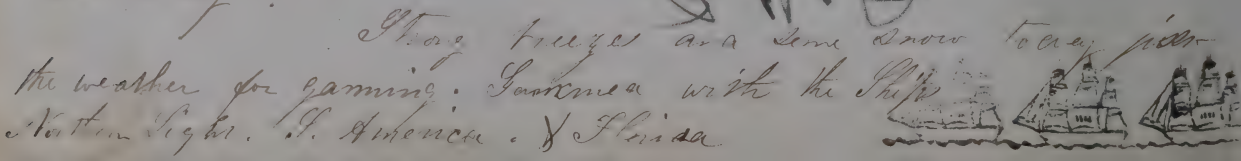 Strong breezes and some snow today just
the weather for gamming. Gammed with the Ships
Northern Light. N. America. & Florida